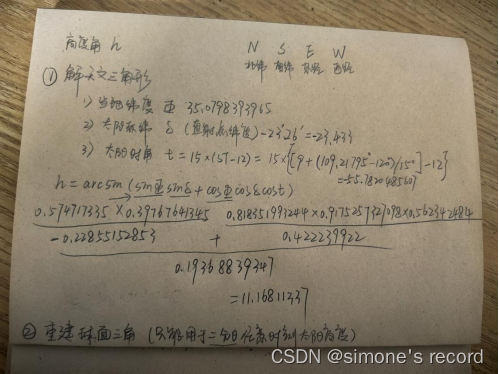 高度角 h
N S E W
北纬 南纬 东经 西经
① 解天文三角形
1) 当地纬度 Φ 35.0798393965
2) 太阳赤纬 δ (直射点纬度) -23°26′ = -23.433
3) 太阳时角 t = 15×(ST-12) = 15×{[9+(109.21795°-120°)/15°]-12}
= -55.782048560
h = arcsin (sinΦ sinδ + cosΦ cosδ cost)
0.574717335 × 0.39767641345 0.81835199324 × 0.9175257327098 × 0.562342484
-0.22855152853 + 0.422239922
0.19368839347
= 11.16811337
② 重建球面三角 (只能用于二分日任意时刻太阳高度)
CSDN @simone's record